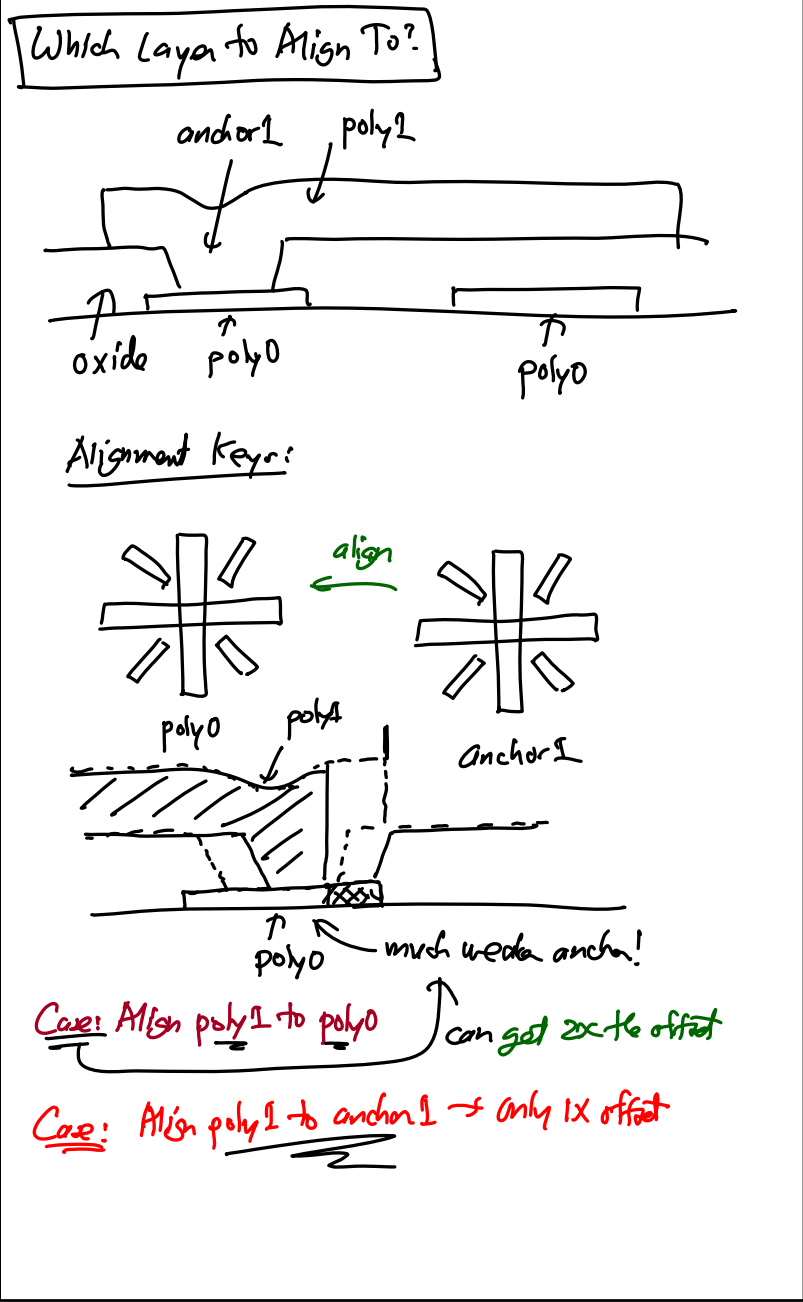 Which Layer to Align To?
anchor1
poly1
oxide
poly0
poly0
Alignment Keys:
align
poly0
anchor1
poly1
poly0
much weaker anchor!
Case: Align poly1 to poly0
can get 2x the offset
Case: Align poly1 to anchor1 → only 1x offset